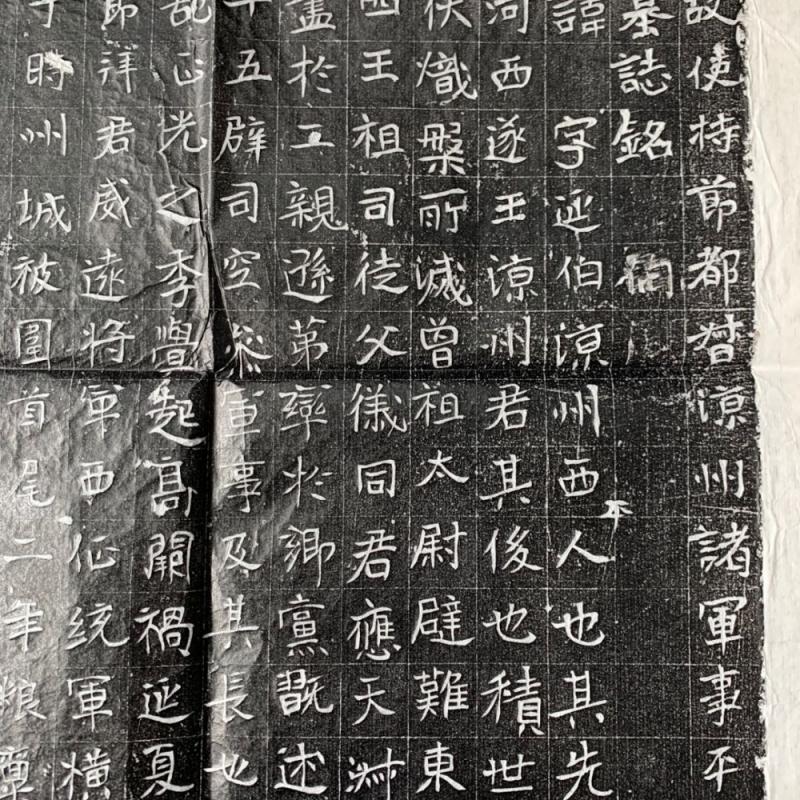 故使持節都督涼州諸軍事平
墓誌銘
諱 字延伯涼州西平人也其先
河西遂王涼州君其後也積世
伏熾槃所滅曾祖太尉辟難東
西王祖司徒父儀同君應天
盡於二親遜第於鄉黨既述
十五辟司空參軍事及其長也
乱正光之季舋起高闕禍延夏
節拜君威遠將軍西征統軍橫
于時州城被圍首尾二年粮單